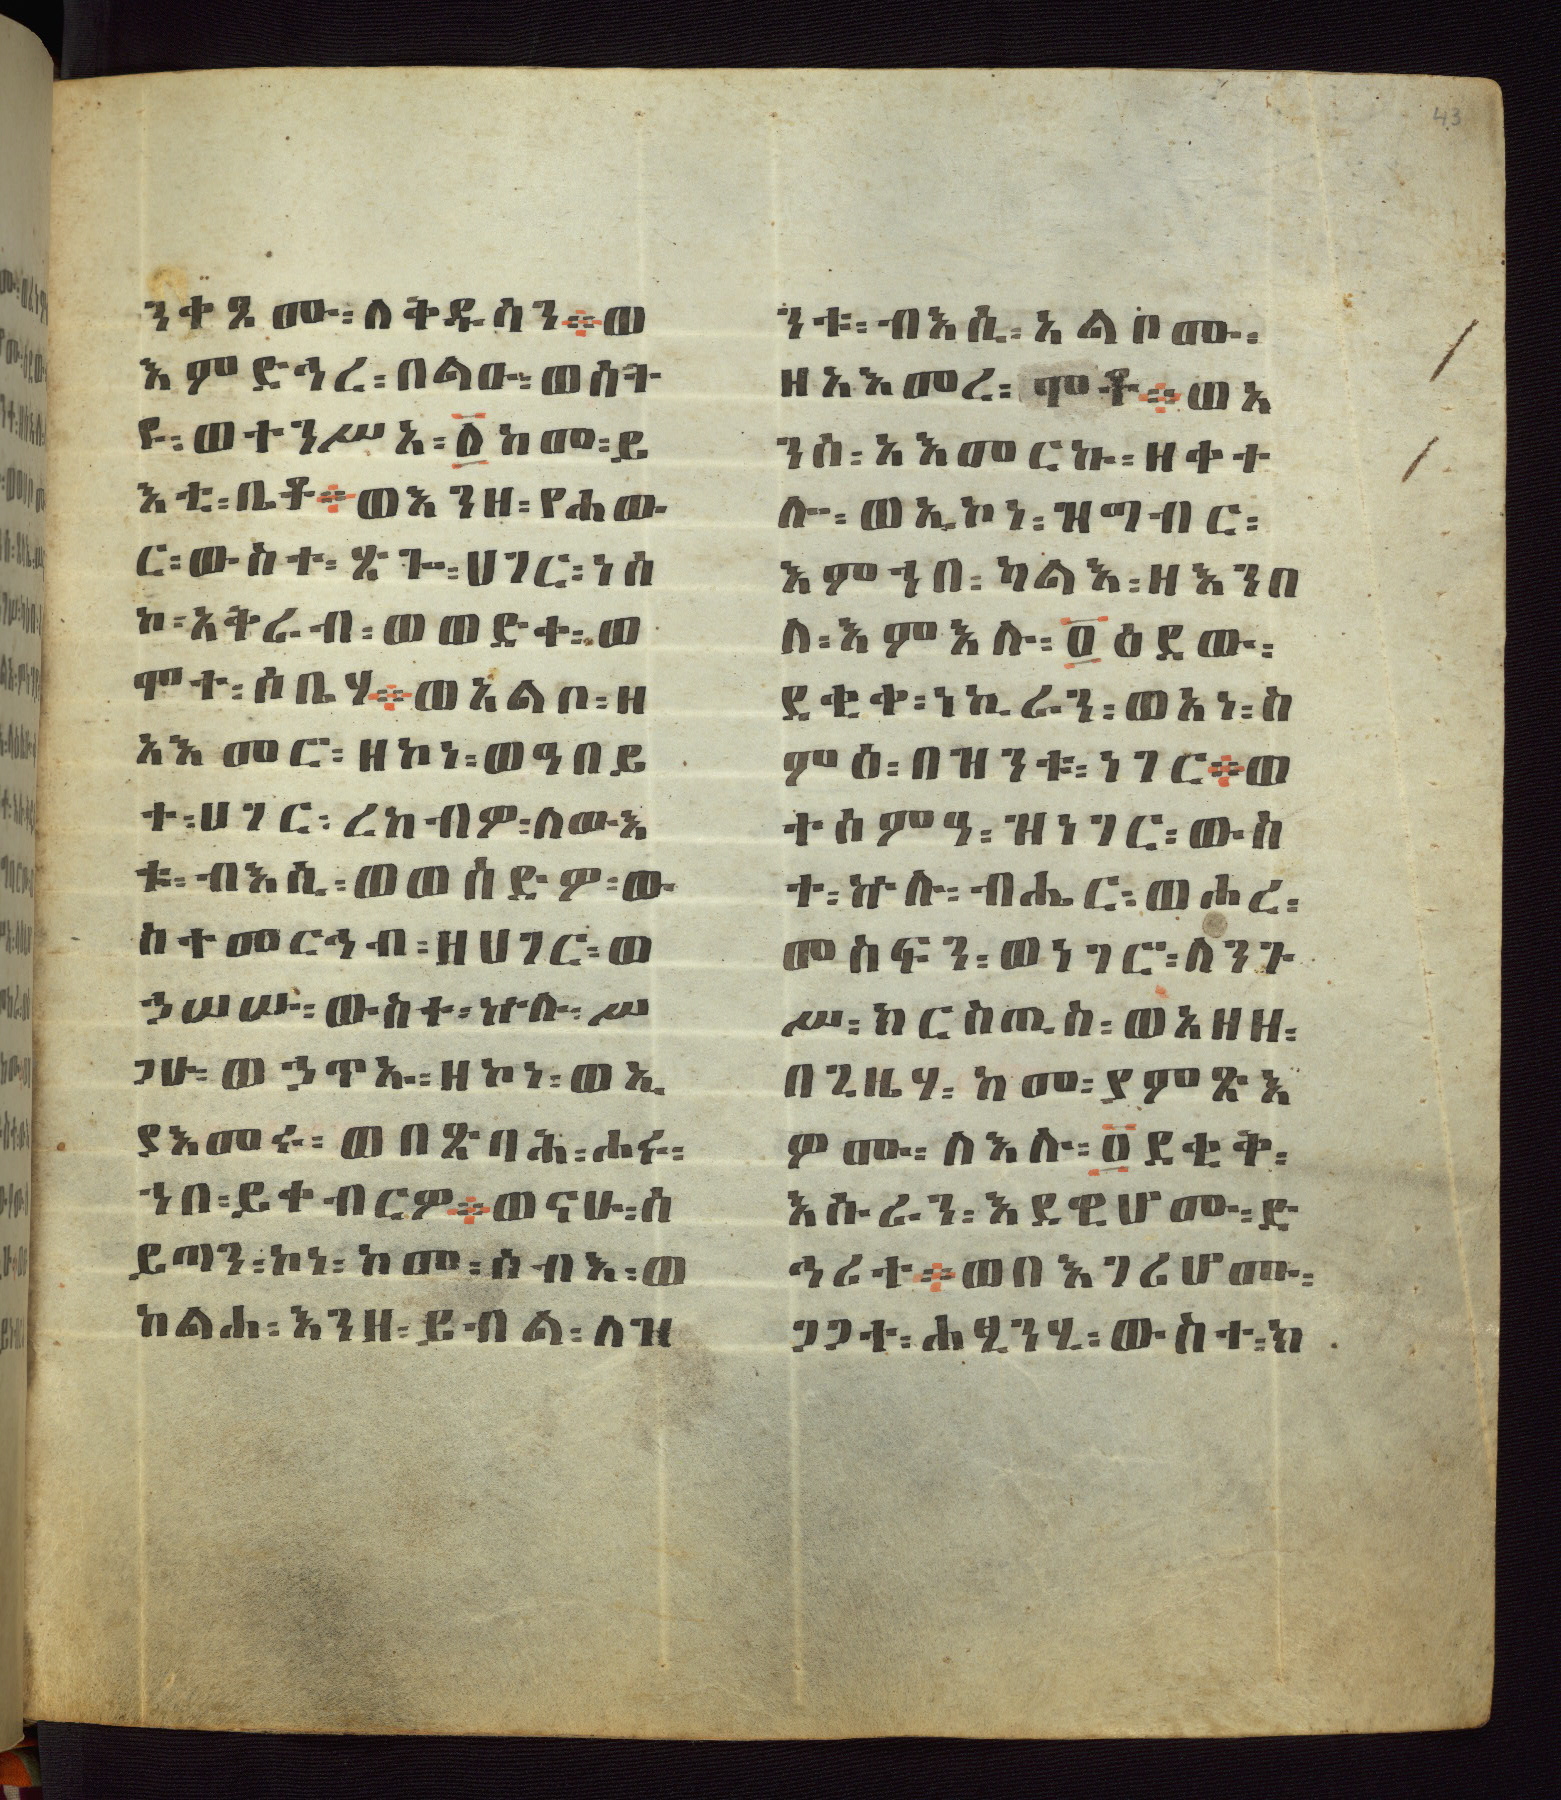 43
ንቀጺሙ፡ለቅዱስን፨ወ
እምድኅረ፡በልዑ፡ወስት
ዩ፡ወተንሥአ፡፩ከመ፡ይ
እቲ፡ቤቶ፨ወእንዘ፡የሐው
ር፡ውስተ፡ጽጐ፡ሀገር፡ነሰ
ኮ፡አቅራብ፡ወወድቀ፡ወ
ሞተ፡ሰቤሃ፨ወአልቦ፡ዘ
አእመሮ፡ዘኮነ፡ወዓበይ
ተ፡ሀገር፡ረከብዎ፡ለውእ
ቱ፡ብእሲ፡ወወሰድዎ፡ው
ስተመርኅብ፡ዘሀገር፡ወ
ኃሠሡ፡ውስተ፡ኵሉ፡ሥ
ጋሁ፡ወኃጥኡ፡ዘኮነ፡ወኢ
ያእመሩ፡ወበጽባሕ፡ሐሩ፡
ኀበ፡ይቀብርዎ፨ወናሁ፡ሰ
ይጣን፡ኮነ፡ከመ፡ሰብእ፡ወ
ከልሐ፡እንዘ፡ይብል፡ለዝ
ንቱ፡ብእሲ፡አልቦሙ፡
ዘአእመረ፡ሞቶ፨ወአ
ንሰ፡አእመርኩ፡ዘቀተ
ሎ፡ወኢኮነ፡ዝግብር፡
እምኀበ፡ካልእ፡ዘእንበ
ለ፡እምእሉ፡፬ዕደው፡
ደቂቀ፡ነኪራን፡ወአነ፡ስ
ምዕ፡በዝንቱ፡ነገር፨ወ
ተሰምዓ፡ዝነገር፡ውስ
ተ፡ኵሉ፡ብሔር፡ወሐረ፡
መስፍን፡ወነገሮ፡ለንጉ
ሥ፡ክርስጢስ፡ወአዘዘ፡
በጊዜሃ፡ከመ፡ያምጽእ
ዎሙ፡ለእሉ፡፬ደቂቅ፡
እሱራን፡እደዊሆሙ፡ድ
ኅሪተ፨ወበእገሪሆሙ፡
ጋጋተ፡ሐፂንሂ፡ውስተ፡ክ